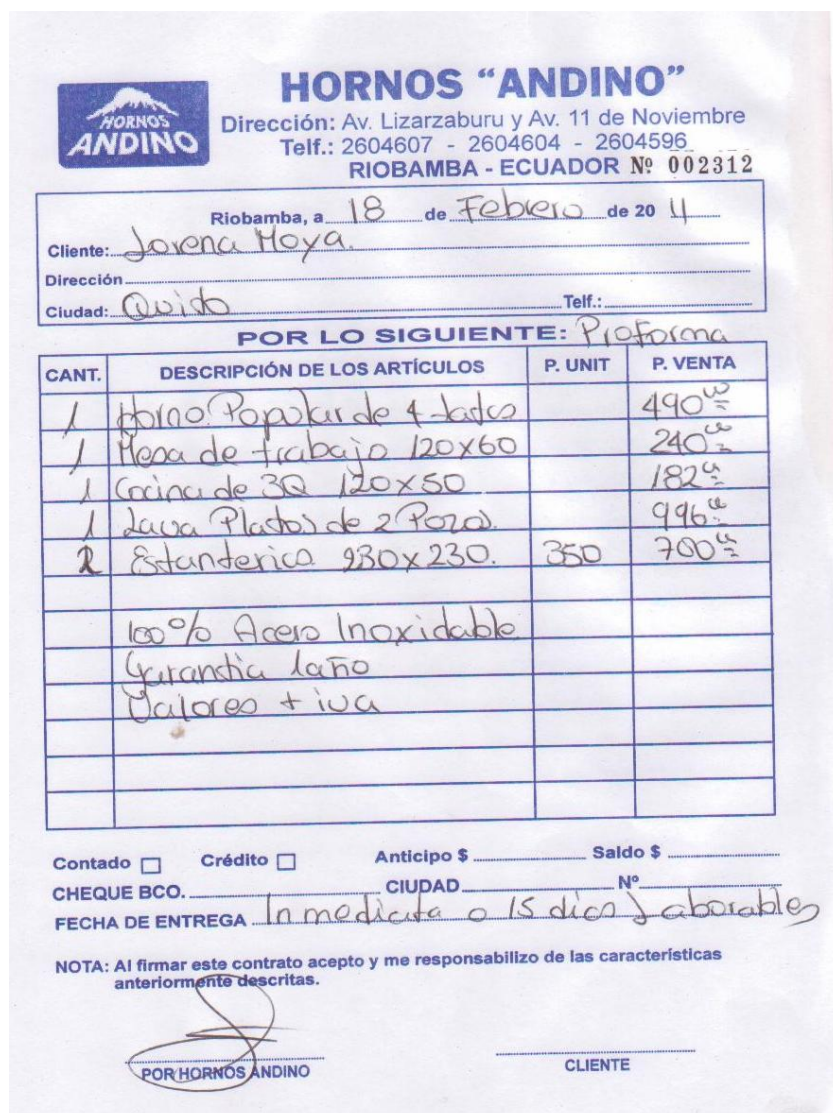 HORNOS "ANDINO"
HORNOS
ANDINO
Dirección: Av. Lizarzaburu y Av. 11 de Noviembre
Telf.: 2604607 - 2604604 - 2604596
RIOBAMBA - ECUADOR Nº 002312
Riobamba, a 18 de Febrero de 20 11
Cliente: Lorena Moya.
Dirección
Ciudad: Quito Telf.:
POR LO SIGUIENTE: Proforma
CANT. DESCRIPCIÓN DE LOS ARTÍCULOS P. UNIT P. VENTA
1 Horno Popular de 4 latas 490 00
1 Mesa de trabajo 120x60 240 00
1 Cocina de 3Q 120x50 182 00
1 Lava Platos de 2 Pozos. 996 00
2 Estanterica 230x230. 350 700 00
100% Acero Inoxidable
Garantia 1año
Valores + iva
Contado Crédito Anticipo $ Saldo $
CHEQUE BCO. CIUDAD Nº
FECHA DE ENTREGA Inmediata o 15 dias Laborables
NOTA: Al firmar este contrato acepto y me responsabilizo de las características
anteriormente descritas.
POR HORNOS ANDINO CLIENTE